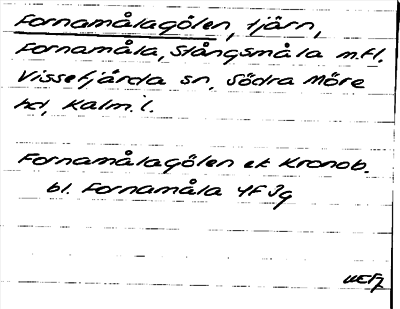 Fornamålagölen, tjärn,
Fornamåla, Stångsmåla m.fl.
Vissefjärda sn, Södra Möre
hd, Kalm.l.
Fornamålagölen ek Kronob.
bl. Fornamåla 4F Jg